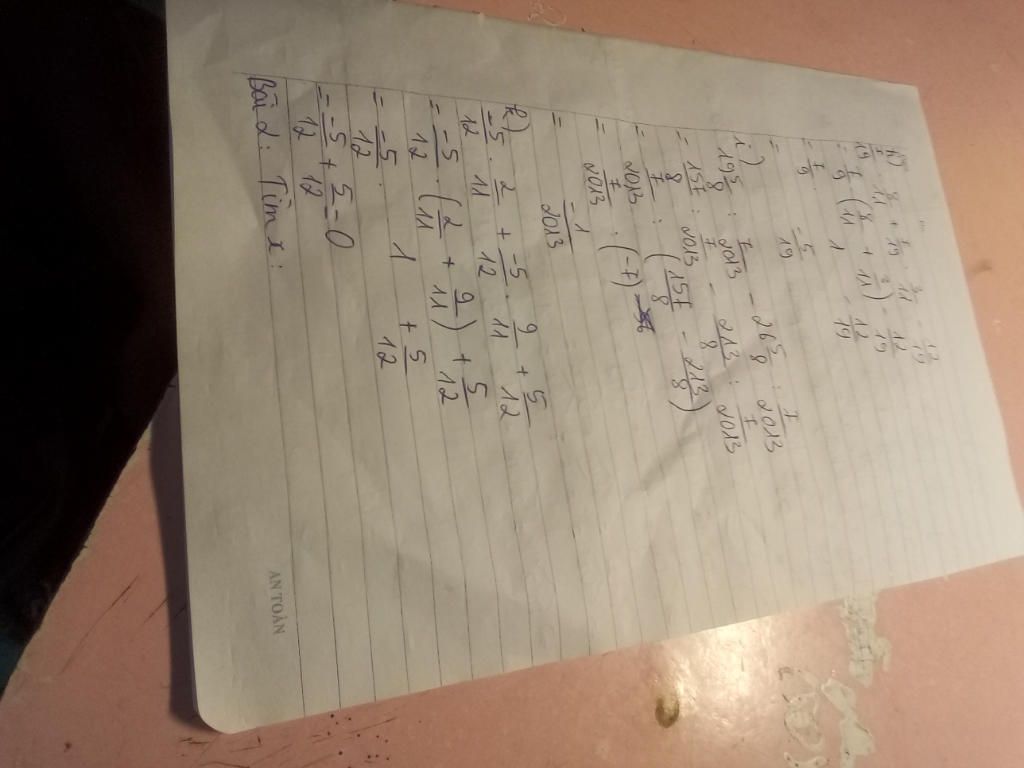 h) 7/19 · 8/11 + 7/19 · 3/11 - 12/19
= 7/19 (8/11 + 3/11) - 12/19
= 7/19 · 1 - 12/19
= -5/19
i) 19 5/8 : 7/2013 - 26 5/8 : 7/2013
= 157/8 : 7/2013 - 213/8 : 7/2013
= 7/2013 : (157/8 - 213/8)
= 7/2013 : (-7)
= -1/2013
k)
-5/12 · 2/11 + -5/12 · 9/11 + 5/12
= -5/12 · (2/11 + 9/11) + 5/12
= -5/12 · 1 + 5/12
= -5/12 + 5/12 = 0
Bài 2: Tìm x:
AN TOÀN